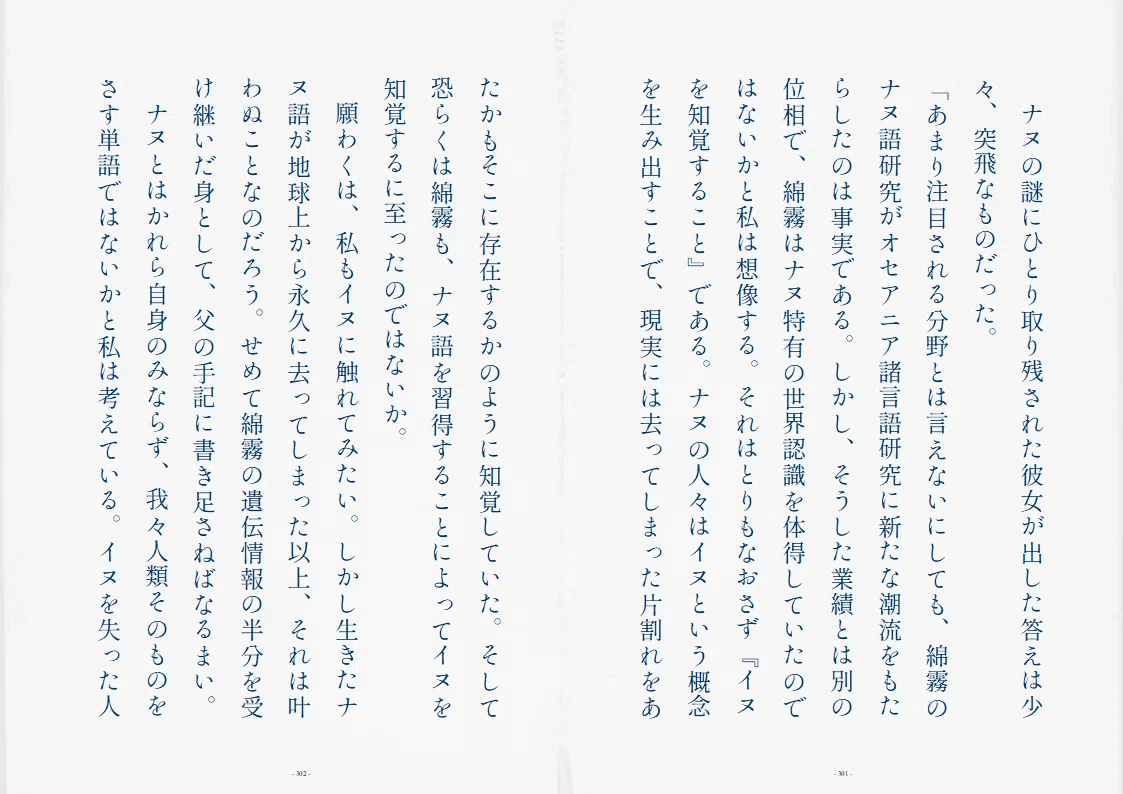 ナヌの謎にひとり取り残された彼女が出した答えは少
々、突飛なものだった。
「あまり注目される分野とは言えないにしても、綿霧の
ナヌ語研究がオセアニア諸言語研究に新たな潮流をもた
らしたのは事実である。しかし、そうした業績とは別の
位相で、綿霧はナヌ特有の世界認識を体得していたので
はないかと私は想像する。それはとりもなおさず『イヌ
を知覚すること』である。ナヌの人々はイヌという概念
を生み出すことで、現実には去ってしまった片割れをあ
- 301 -
たかもそこに存在するかのように知覚していた。そして
恐らくは綿霧も、ナヌ語を習得することによってイヌを
知覚するに至ったのではないか。
願わくは、私もイヌに触れてみたい。しかし生きたナ
ヌ語が地球上から永久に去ってしまった以上、それは叶
わぬことなのだろう。せめて綿霧の遺伝情報の半分を受
け継いだ身として、父の手記に書き足さねばなるまい。
ナヌとはかれら自身のみならず、我々人類そのものを
さす単語ではないかと私は考えている。イヌを失った人
- 302 -